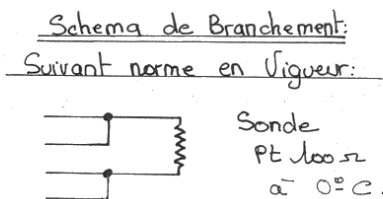 Schema de Branchement:
Suivant norme en Vigueur:
Sonde
Pt 100 Ω
à 0º C.